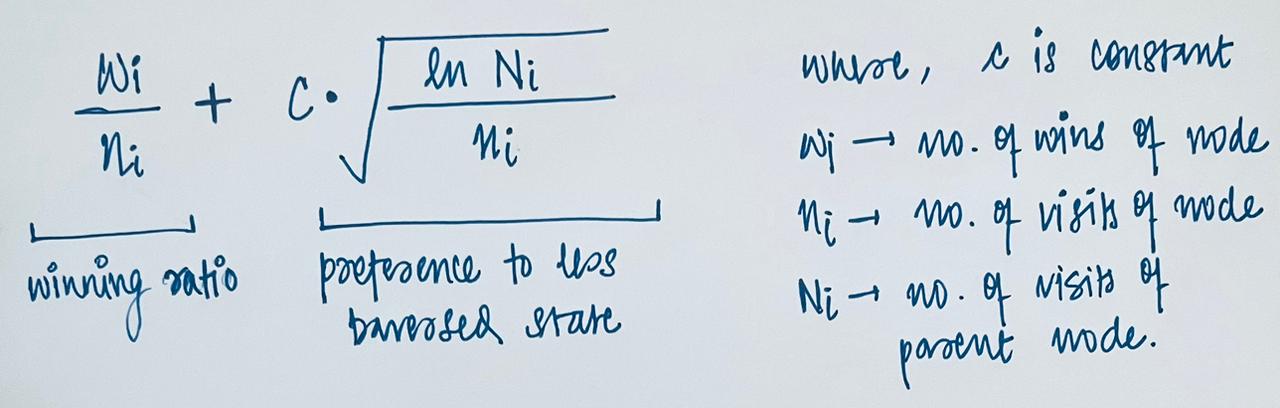 Wi/ni + C·√(ln Ni/ni)
winning ratio
preference to less
traversed state
where, c is constant
Wi → no. of wins of node
ni → no. of visits of node
Ni → no. of visits of
parent node.